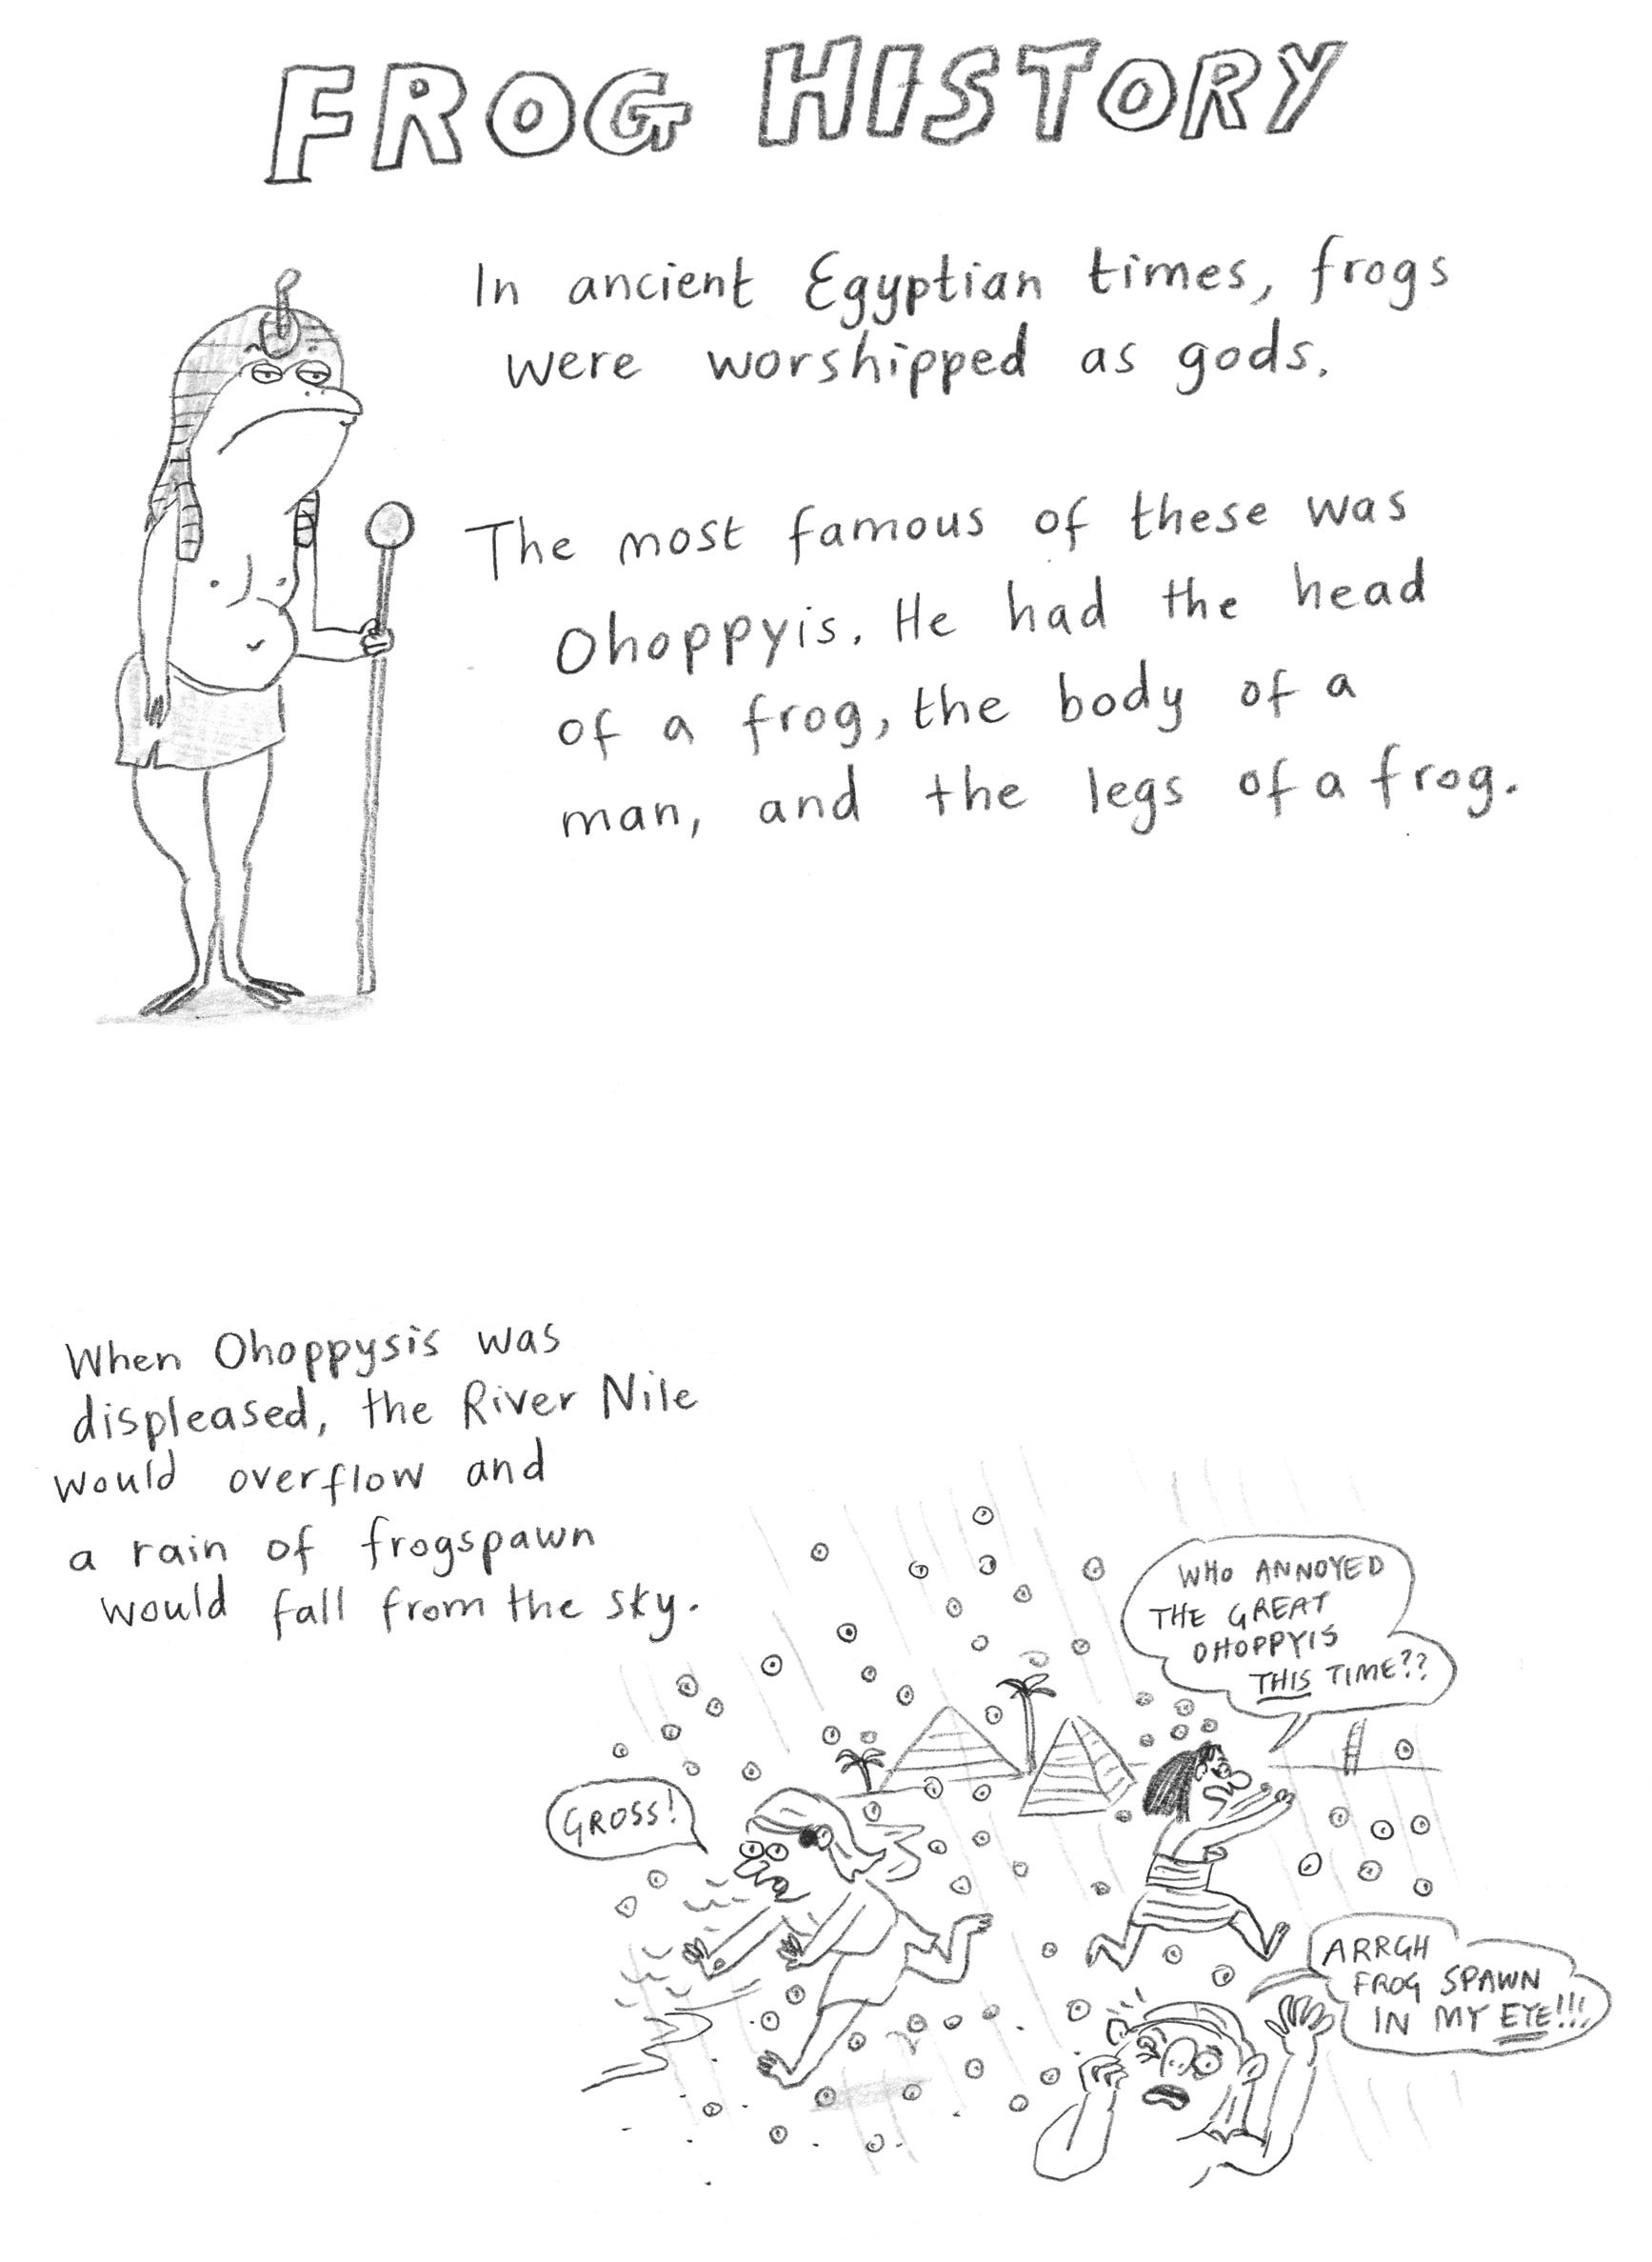 FROG HISTORY
In ancient Egyptian times, frogs
were worshipped as gods.
The most famous of these was
Ohoppyis. He had the head
of a frog, the body of a
man, and the legs of a frog.
When Ohoppysis was
displeased, the River Nile
would overflow and
a rain of frogspawn
would fall from the sky.
WHO ANNOYED
THE GREAT
OHOPPYIS
THIS TIME??
GROSS!
ARRGH
FROG SPAWN
IN MY EYE!!!